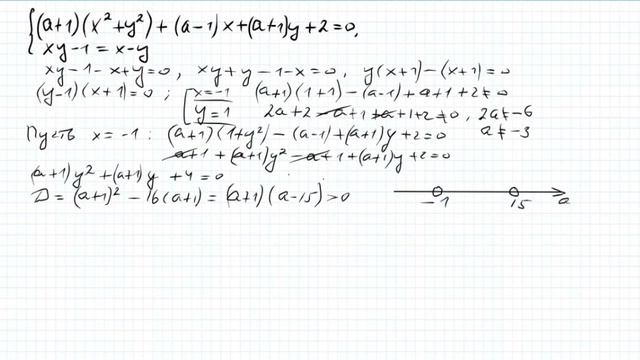 {(a+1)(x²+y²)+(a-1)x+(a+1)y+2=0,
xy-1=x-y
xy-1-x+y=0, xy+y-1-x=0, y(x+1)-(x+1)=0
(y-1)(x+1)=0; [x=-1 (a+1)(1+1)-(a-1)+a+1+2≠0
y=1 2a+2-a+1+a+1+2≠0, 2a≠-6
Пусть x=-1: (a+1)(1+y²)-(a-1)+(a+1)y+2=0 a≠-3
a+1+(a+1)y²-a+1+(a+1)y+2=0
(a+1)y²+(a+1)y+4=0
D=(a+1)²-16(a+1)=(a+1)(a-15)>0
-1 15 a